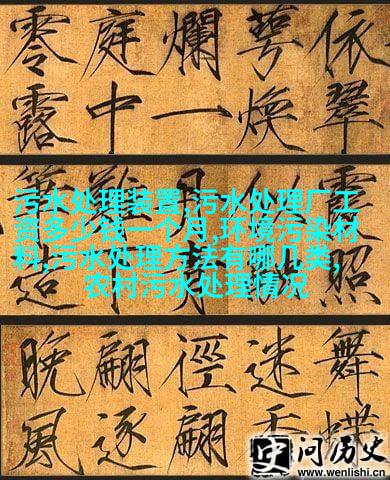 依翠
萼煥
爛一
庭中
零露
污水处理装置,污水处理厂工
资多少钱一个月,环境污染材
料,污水处理方法有哪几类,
农村污水处理情况
照
舞蝶
迷
徑翩
翩逐
晚風
问历史
www.wenlishi.cn